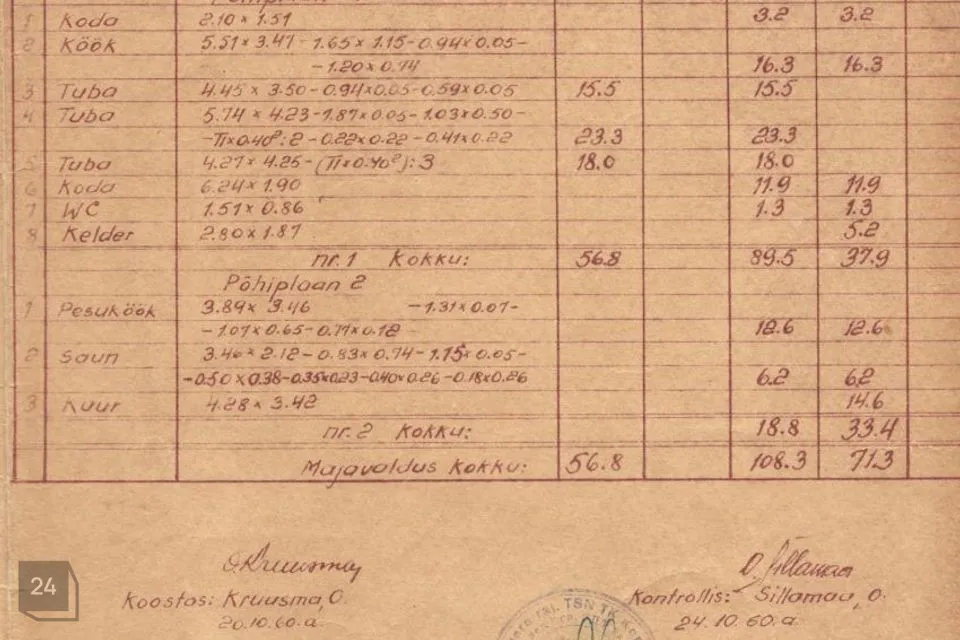 1 Koda 2.10 x 1.51 3.2 3.2
2 Köök 5.51 x 3.47 - 1.65 x 1.15 - 0.94 x 0.05 -
- 1.20 x 0.74 16.3 16.3
3 Tuba 4.45 x 3.50 - 0.94 x 0.05 - 0.59 x 0.05 15.5 15.5
4 Tuba 5.74 x 4.23 - 1.87 x 0.05 - 1.03 x 0.50 -
- π x 0.40² : 2 - 0.22 x 0.22 - 0.41 x 0.22 23.3 23.3
5 Tuba 4.27 x 4.25 - (π x 0.40²) : 3 18.0 18.0
6 Koda 6.24 x 1.90 11.9 11.9
7 WC 1.51 x 0.86 1.3 1.3
8 Kelder 2.80 x 1.87 5.2
nr. 1 Kokku: 56.8 89.5 37.9
Põhiplaan 2
1 Pesuköök 3.89 x 3.46 - 1.31 x 0.07 -
- 1.07 x 0.65 - 0.77 x 0.12 12.6 12.6
2 Saun 3.46 x 2.12 - 0.83 x 0.74 - 1.75 x 0.05 -
- 0.50 x 0.38 - 0.35 x 0.23 - 0.40 x 0.26 - 0.18 x 0.26 6.2 6.2
3 Kuur 4.28 x 3.42 14.6
nr. 2 Kokku: 18.8 33.4
Majavaldus kokku: 56.8 108.3 71.3
O. Kruusmaa O. Sillamaa
Koostas: Kruusma, O. Kontrollis: Sillamaa, O.
20.10.60.a. 24.10.60.a
raj. TSN TK
24